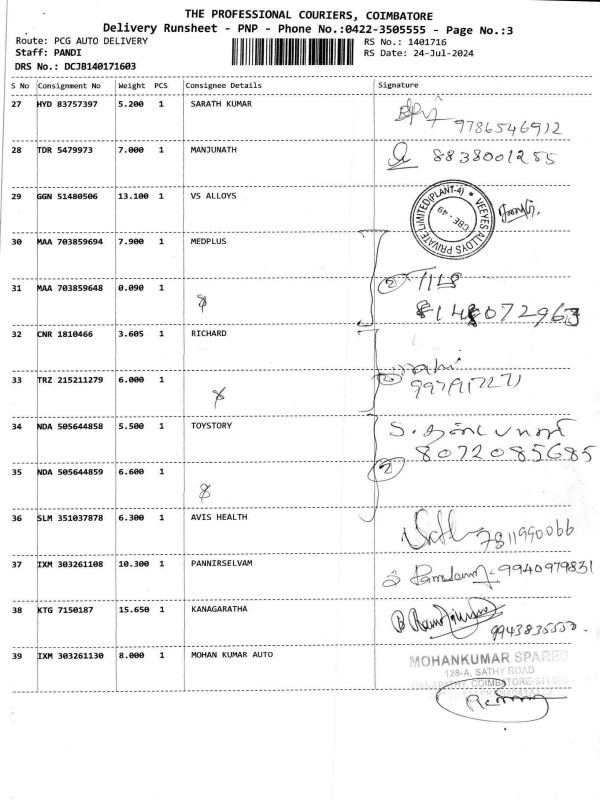 THE PROFESSIONAL COURIERS, COIMBATORE
Delivery Runsheet - PNP - Phone No.:0422-3505555 - Page No.:3
Route: PCG AUTO DELIVERY RS No.: 1401716
Staff: PANDI RS Date: 24-Jul-2024
DRS No.: DCJB140171603
S No Consignment No Weight PCS Consignee Details Signature
27 HYD 83757397 5.200 1 SARATH KUMAR
9786546912
28 TDR 5479973 7.000 1 MANJUNATH 8838001255
29 GGN 51480506 13.100 1 VS ALLOYS
VEEYES ALLOYS PRIVATE LIMITED (PLANT-4) ★
CBE - 49
30 MAA 703859694 7.900 1 MEDPLUS
31 MAA 703859648 0.090 1 2
8148072963
32 CNR 1810466 3.605 1 RICHARD
33 TRZ 215211279 6.000 1
34 NDA 505644858 5.500 1 TOYSTORY
8072085685
35 NDA 505644859 6.600 1 2
36 SLM 351037878 6.300 1 AVIS HEALTH
7811990066
37 IXM 303261108 10.300 1 PANNIRSELVAM 9940979831
38 KTG 7150187 15.650 1 KANAGARATHA
9943835550
39 IXM 303261130 8.000 1 MOHAN KUMAR AUTO
MOHANKUMAR SPARES
128-A, SATHY ROAD
COIMBATORE